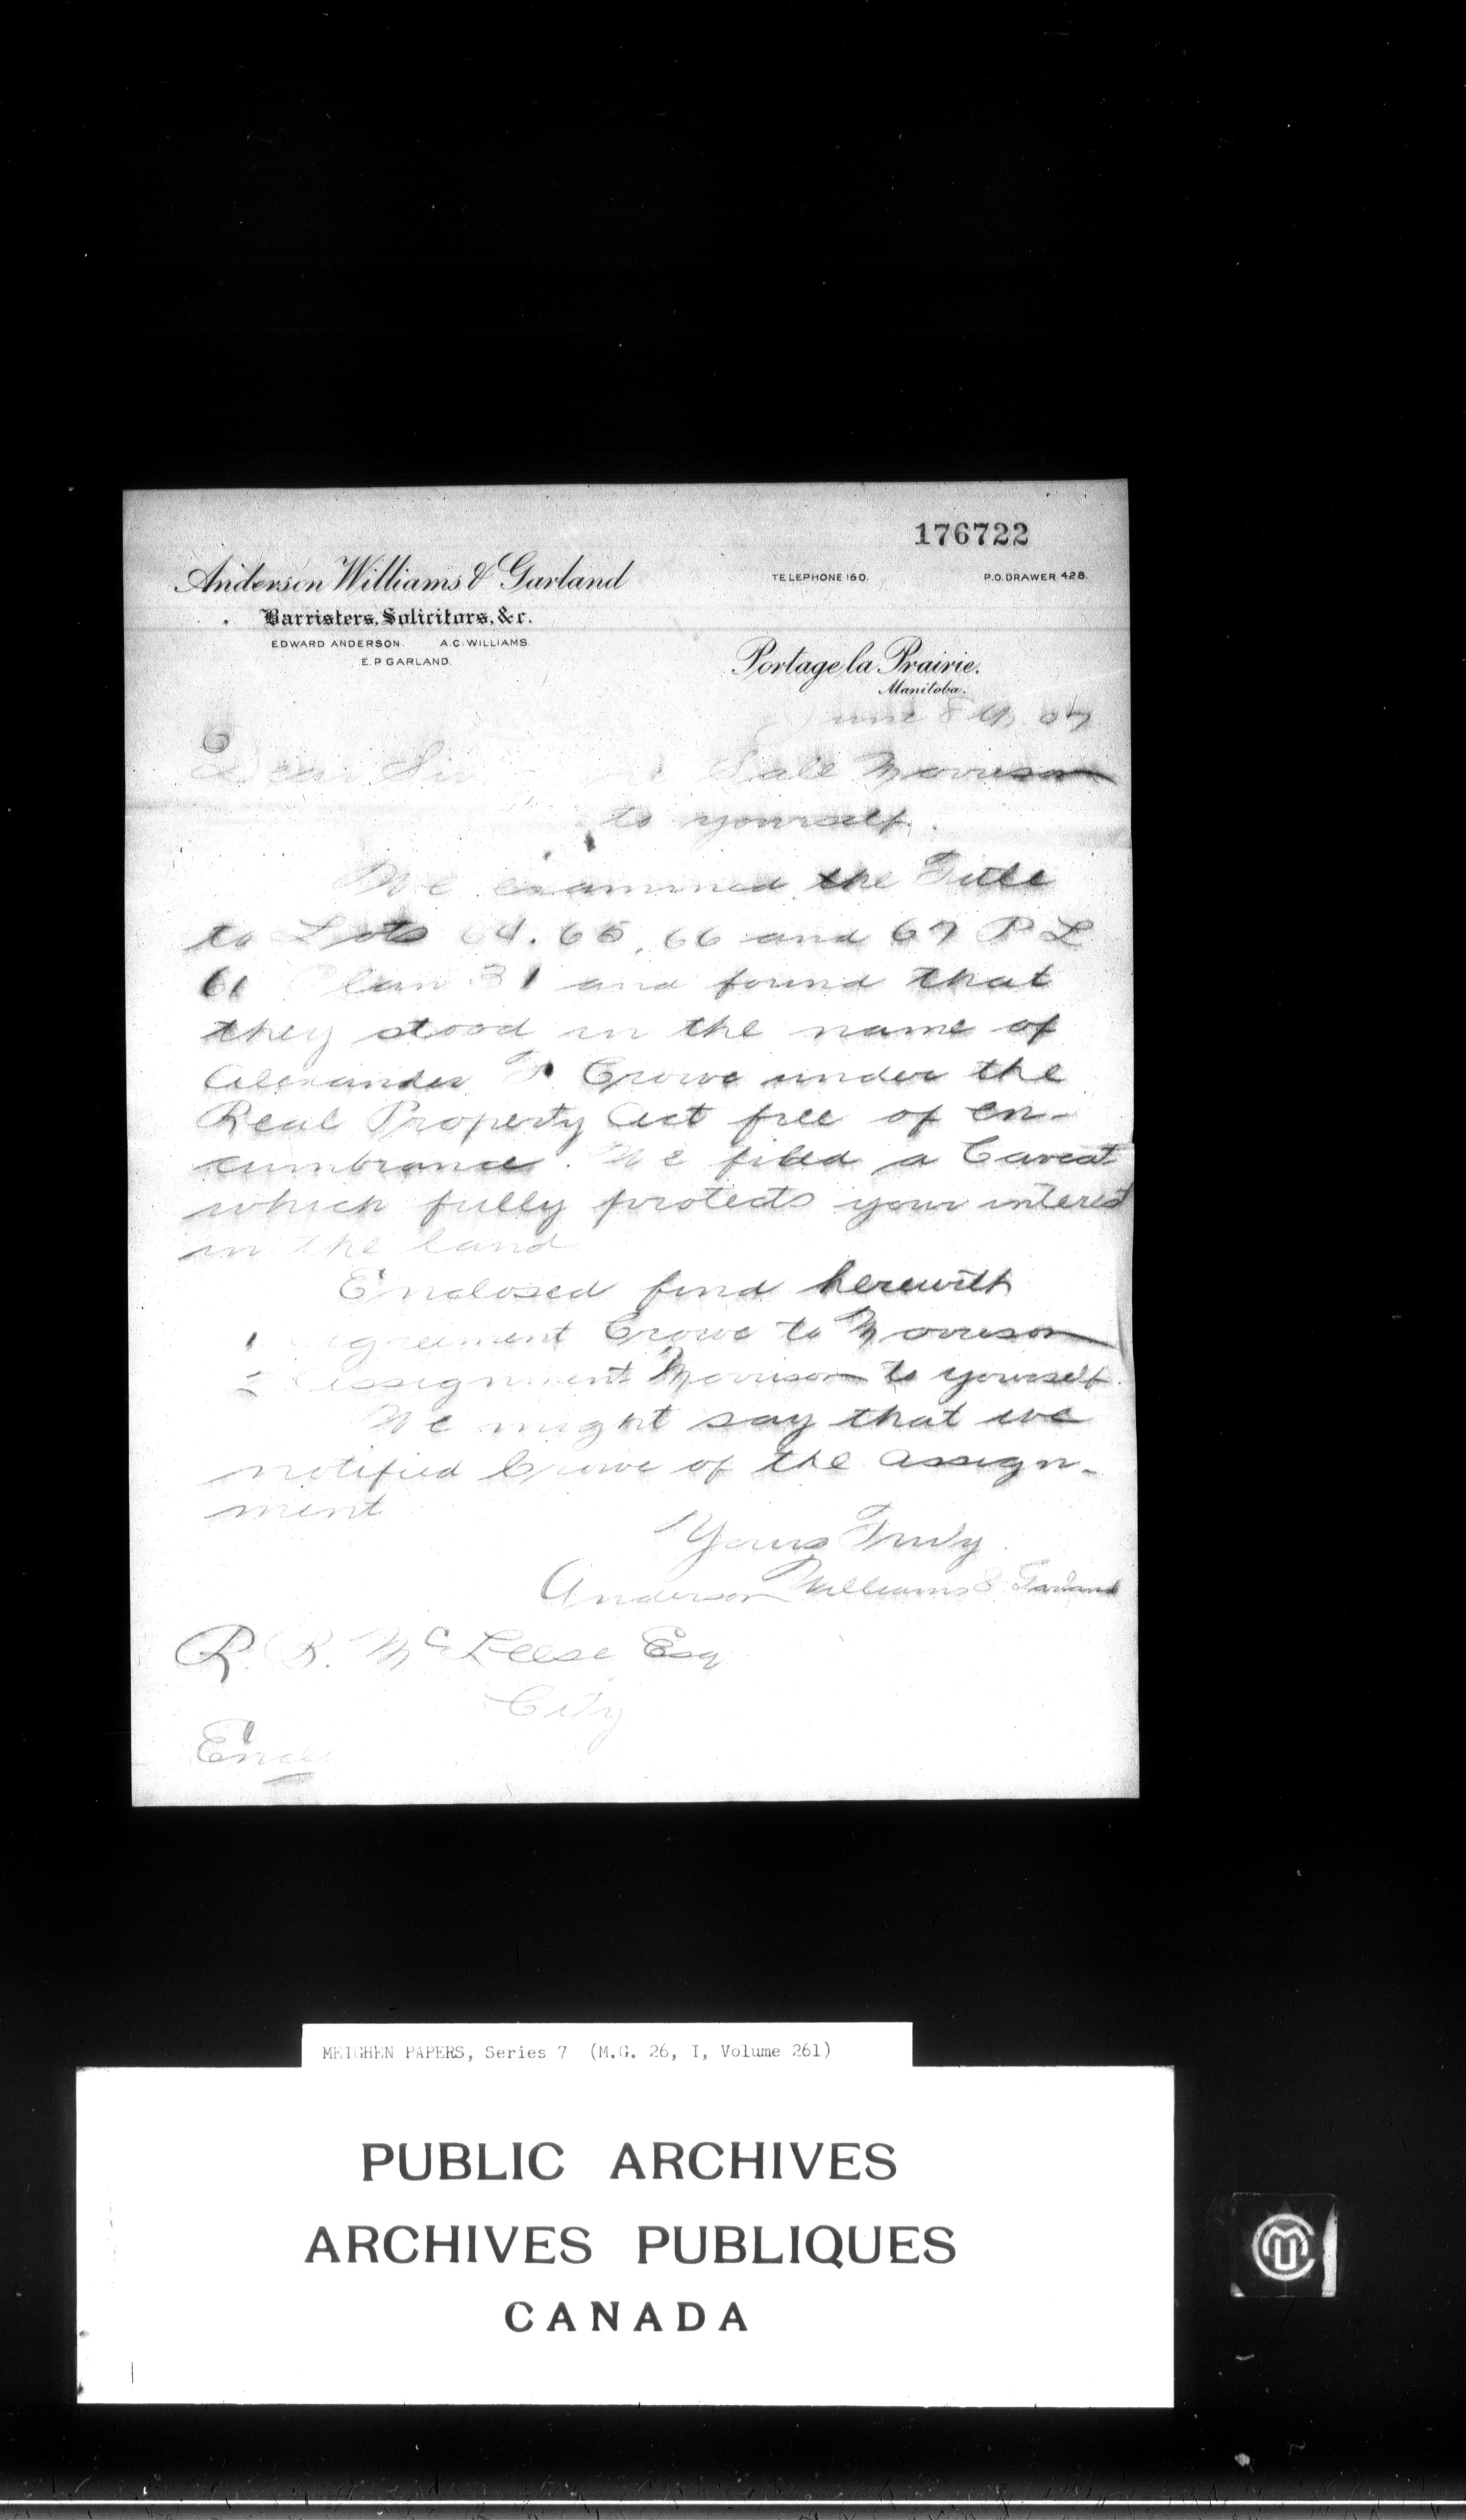 176722
Anderson Williams & Garland
TELEPHONE 150. P.O. DRAWER 428.
Barristers, Solicitors, &c.
EDWARD ANDERSON. A.C. WILLIAMS
E. P GARLAND.
Portage la Prairie.
Manitoba.
June 8th 07
Dear Sir - re Sale Morrison
to yourself.
We examined the Title
to Lots 64. 65. 66 and 67 P L
61 Plan 31 and found that
they stood in the name of
Alexander Crowe under the
Real Property Act free of en-
cumbrance. We filed a Caveat
which fully protects your interest
in the land
Enclosed find herewith
1 Agreement Crowe to Morrison
2 Assignment Morrison to yourself.
We might say that we
notified Crowe of the assign-
ment
Yours Truly
Anderson Williams & Garland
R. B. McLeese Esq
City
Encl
MEIGHEN PAPERS, Series 7 (M.G. 26, I, Volume 261)
PUBLIC ARCHIVES
ARCHIVES PUBLIQUES
CANADA